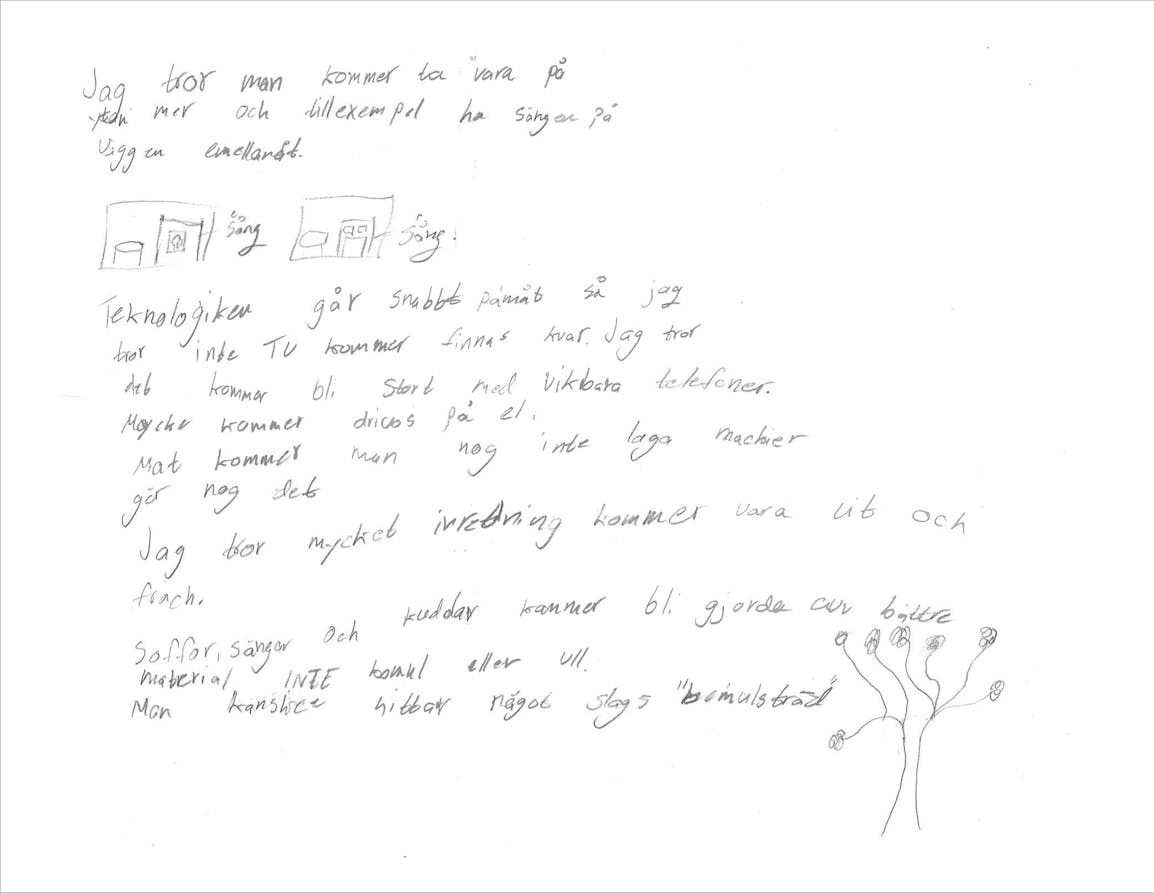 Jag tror man kommer ta vara på
ytan mer och tillexempel ha sängen på
Väggen emellanåt.
säng
säng.
Teknologiken går snabbt påmåt så jag
tror inte TV kommer finnas kvar. Jag tror
det kommer bli stort med Vikbara telefoner.
Mycke kommer drivas på el.
Mat kommer man nog inte laga machier
gör nog det
Jag tror mycket inredning kommer vara lit och
fräch.
Soffor, sängar och kuddar kommer bli gjorda av bättre
material INTE bomul eller ull.
Man kanshee hittar något slags "bomulsträd"